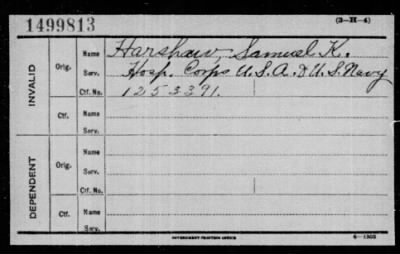 1499813
(3—H—4)
INVALID
Orig.
Name Harshaw, Samuel K.
Serv. Hosp. Corps U.S.A. & U.S. Navy
Ctf. No. 1253391.
Ctf.
Name
Serv.
DEPENDENT
Orig.
Name
Serv.
Ctf. No.
Ctf.
Name
Serv.
GOVERNMENT PRINTING OFFICE
6—1303